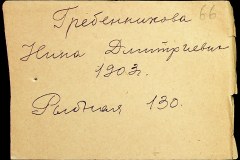 66
Гребенникова
Нина Дмитриевн
1903г.
Рыбная 130.